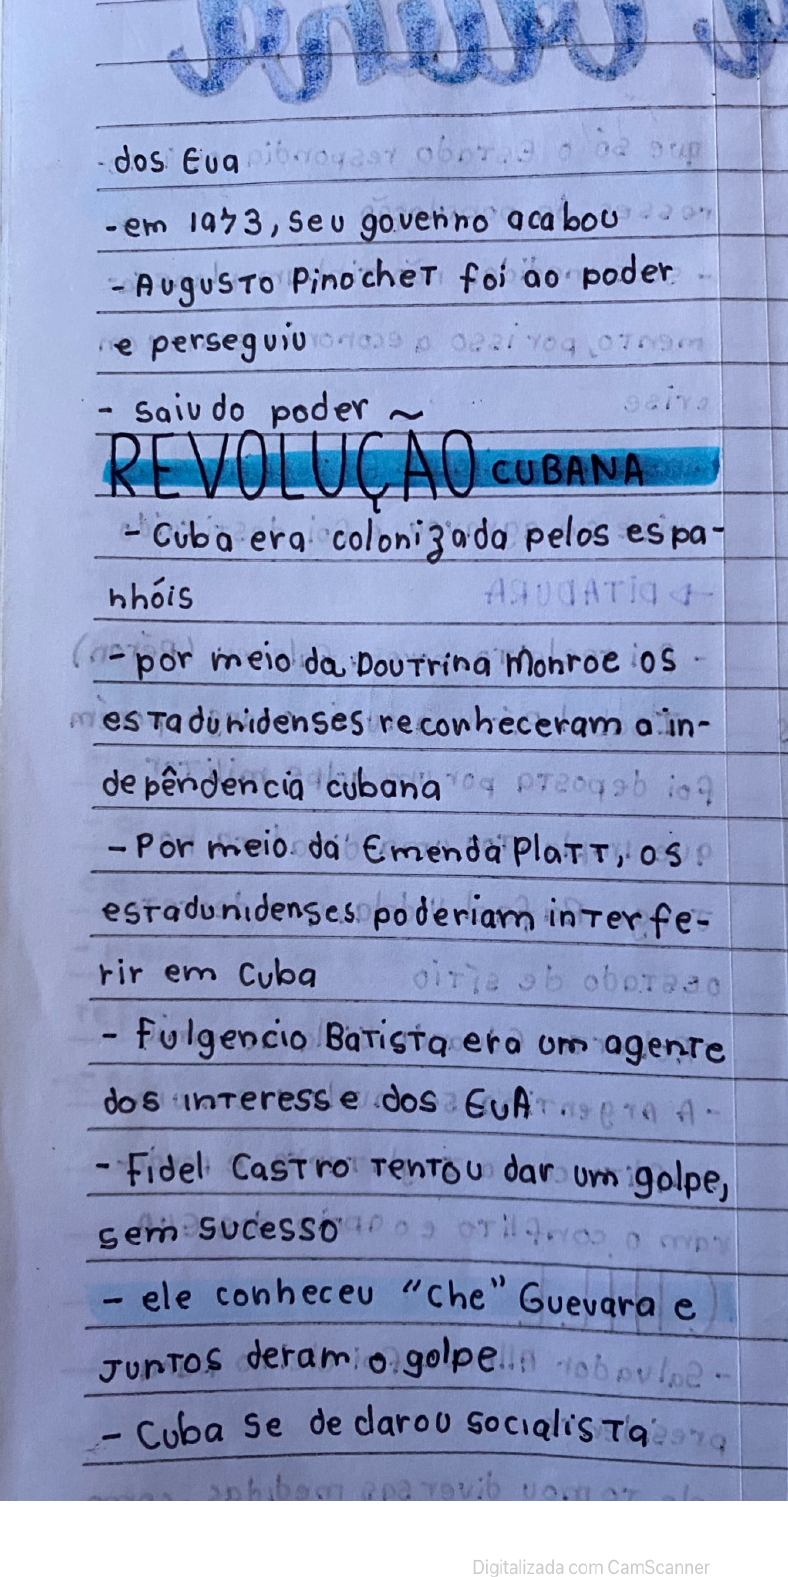 - dos Eua
- em 1973, seu governo acabou
- Augusto Pinochet foi ao poder
e perseguiu
- saiu do poder ~
REVOLUÇÃO CUBANA
- Cuba era colonizada pelos espa-
nhóis
- por meio da Doutrina Monroe os
estadunidenses reconheceram a in-
depêndencia cubana
- Por meio da Emenda Platt, os
estadunidenses poderiam interfe-
rir em Cuba
- Fulgencio Batista era um agente
dos interesse dos EUA.
- Fidel Castro tentou dar um golpe,
sem sucesso
- ele conheceu "Che" Guevara e
juntos deram o golpe
- Cuba se declarou socialista
Digitalizada com CamScanner